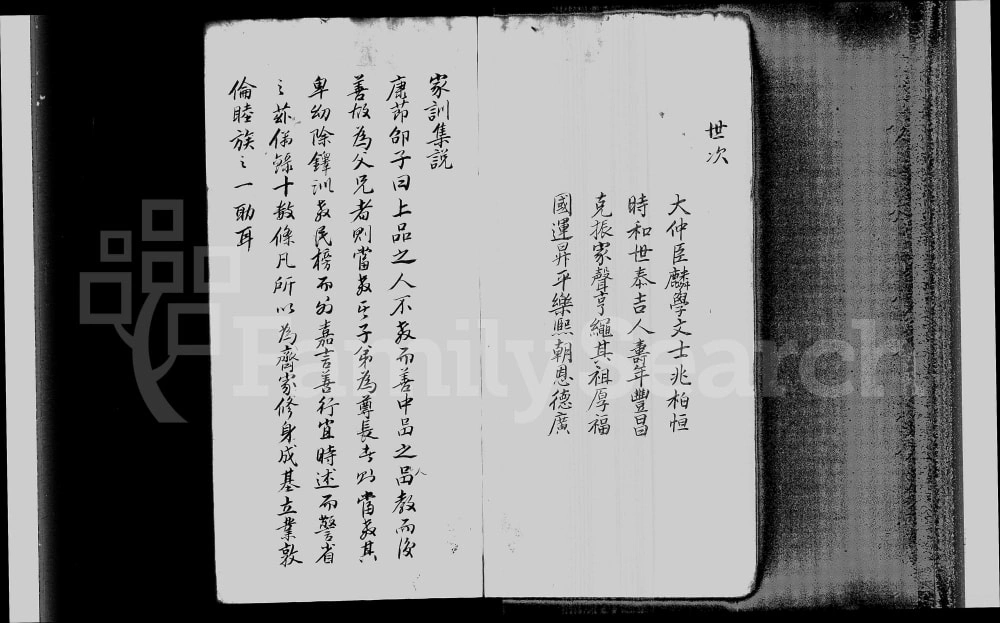 世次
大仲臣麟學文士兆柏恒
時和世泰吉人壽年豐昌
克振家聲亨繩其祖厚福
國運昇平樂熙朝恩德廣
家訓集説
康莭邵子曰上品之人不教而善中品之品人教而後
善故為父兄者則當教其子弟為尊長者則當教其
卑幼除鐸訓教民榜而外嘉言善行宜時述而警省
之茲偶錄十数條凡所以為齊家修身成基立業敦
倫睦族之一助耳
FamilySearch